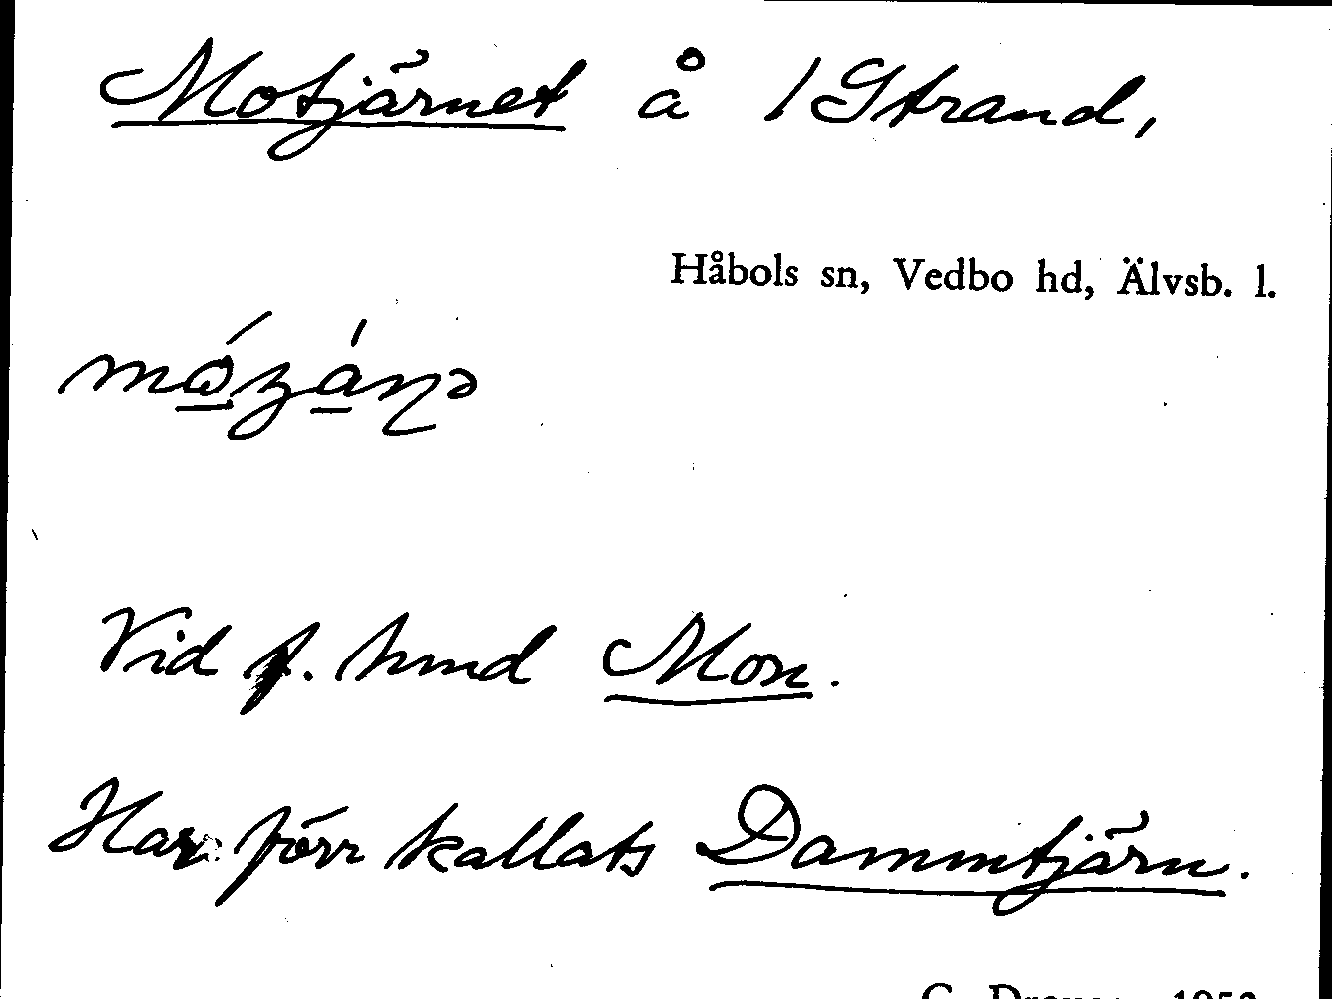 Motjärnet å 1 Strand,
Håbols sn, Vedbo hd, Älvsb. l.
Vid f. hmd Mon.
Har förr kallats Dammtjärn.